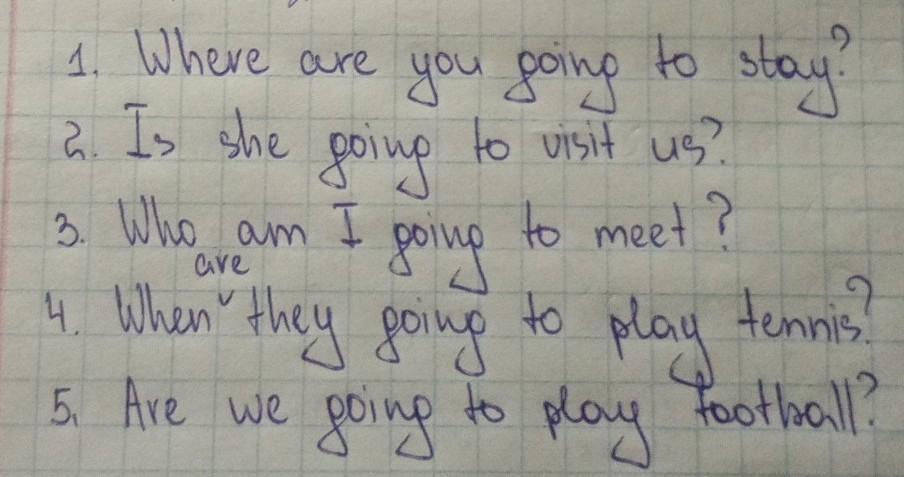 1. Where are you going to stay?
2. Is she going to visit us?
3. Who am I going to meet?
are
4. When ˅ they going to play tennis?
5. Are we going to play football?